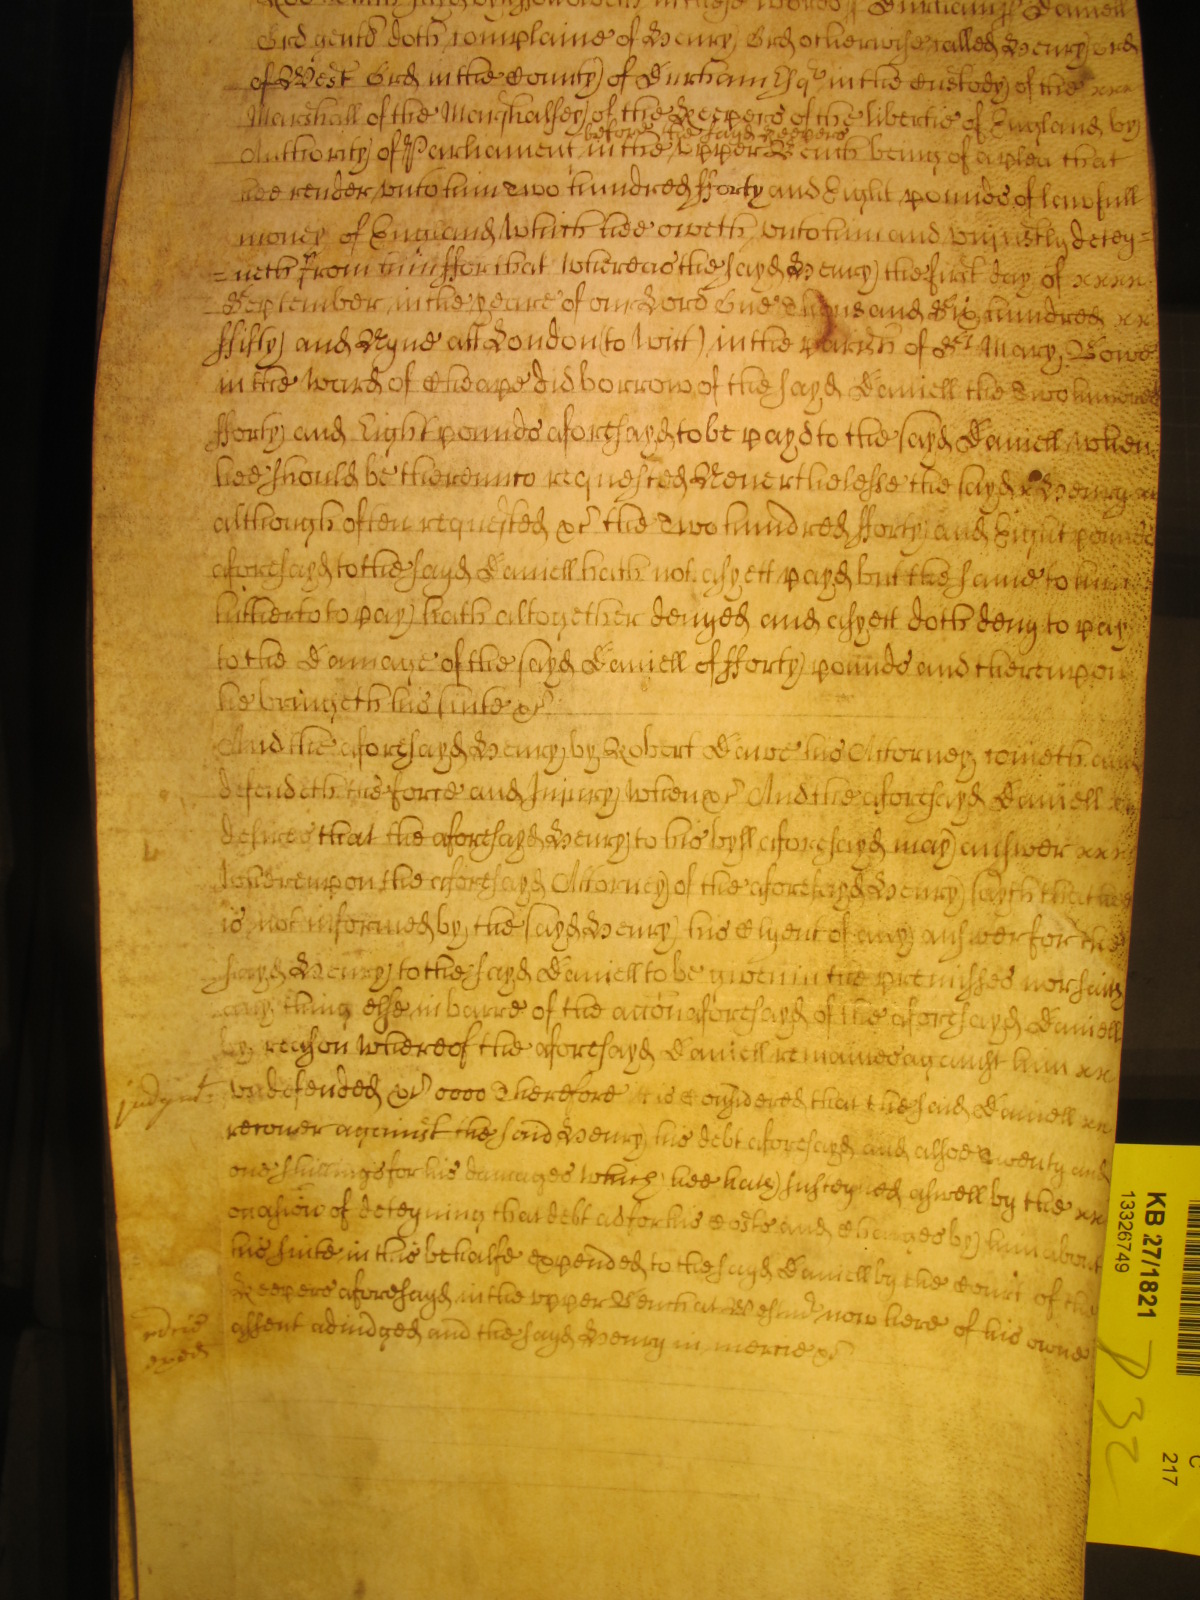 sayd by followeth in these words ss Durham ss Daniell
Ord gent doth complaine of Henry Ord otherwise called Henry Ord
of West Ord in the County of Durham Esqr in the Custody of the xxx
Marshall of the Marshalsey of the Keepers of the libertie of England by
before the sayd Keepers
Authority of Parliament in the Upper Bench being of a plea that
hee render unto him Two hundred fforty and Eight pounds of lawfull
money of England which hee oweth unto him and uniustly detey=
=neth from him ffor that whereas the sayd Henry the first day of xxxx
September in the yeare of our Lord One Thousand Six hundred xx
ffifty and Nyne att London (to witt) in the parish of St Mary Bowe
in the Ward of Cheape did borrow of the sayd Daniell the Two hundred
fforty and Eight pounds aforesayd to be payd to the sayd Daniell when
hee should be thereunto requested Neverthelesse the sayd Henry xx
although often requested &c the Two hundred fforty and Eight pounds
aforesayd to the sayd Daniell hath not as yett payd but the same to him
hitherto to pay hath altogether denyed and as yett doth deny to pay
to the Damage of the sayd Daniell of fforty pounds and thereupon
he bringeth his suite &c
And the aforesayd Henry by Robert Dawe his Attorney cometh and
defendeth the force and Injury when &c And the aforesayd Daniell xx
desires that the aforesayd Henry to his byll aforesayd may answer xxxx
whereupon the aforesayd Attorney of the aforesayd Henry sayth that hee
is not informed by the sayd Henry his Clyent of any answer for the
sayd Henry to the sayd Daniell to be given in the premisses nor saith
any thing else in barre of the accon aforesayd of the aforesayd Daniell
by reason whereof the aforesayd Daniell remaines against him xx
judgmt
undefended &c oooo Therefore it is Considered that the said Daniell xx
recover against the said Henry his debt aforesayd and alsoe Twenty and
one shillings for his damages which hee hath susteyned aswell by the xx
occasion of deteyning that debt as for his Costs and Charges by him about
his suite in this behalfe expended to the sayd Daniell by the Court of the
Keepers aforesayd in the upper Bench at Westmr now here of his owne
assent adiudged and the sayd Henry in mercie &c
KB 27/1821
13326749
217
P 32